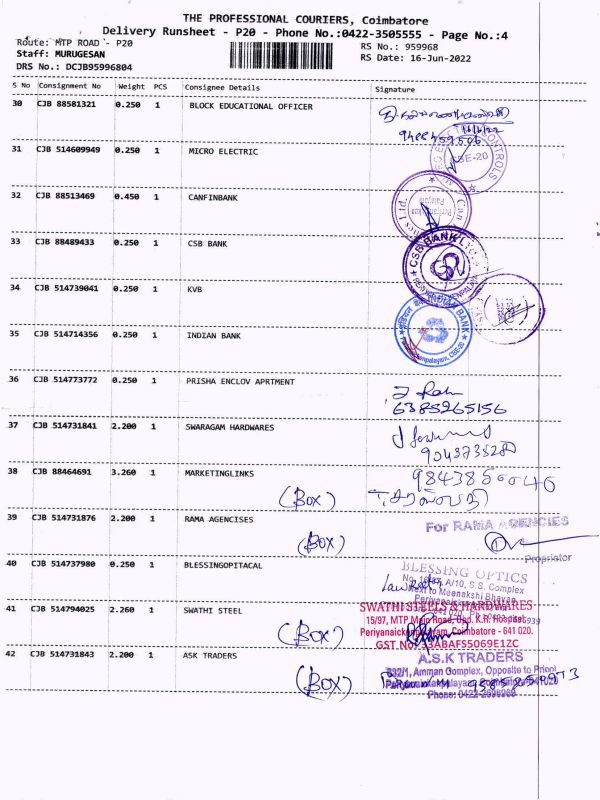 THE PROFESSIONAL COURIERS, Coimbatore
Delivery Runsheet - P20 - Phone No.:0422-3505555 - Page No.:4
Route: MTP ROAD - P20
RS No.: 959968
Staff: MURUGESAN
RS Date: 16-Jun-2022
DRS No.: DCJB95996804
S No Consignment No Weight PCS Consignee Details Signature
30 CJB 88581321 0.250 1 BLOCK EDUCATIONAL OFFICER
31 CJB 514609949 0.250 1 MICRO ELECTRIC
32 CJB 88513469 0.450 1 CANFINBANK
33 CJB 88489433 0.250 1 CSB BANK
CSB BANK
34 CJB 514739041 0.250 1 KVB
35 CJB 514714356 0.250 1 INDIAN BANK
INDIAN BANK
36 CJB 514773772 0.250 1 PRISHA ENCLOV APRTMENT
6385265156
37 CJB 514731841 2.200 1 SWARAGAM HARDWARES
38 CJB 88464691 3.260 1 MARKETINGLINKS
(BOX)
39 CJB 514731876 2.200 1 RAMA AGENCISES
For RAMA AGENCIES
(BOX)
Proprietor
40 CJB 514737980 0.250 1 BLESSINGOPITACAL
BLESSING OPTICS
A/10, S.S. Complex
Next to Meenakshi Bhavan
41 CJB 514794025 2.260 1 SWATHI STEEL
SWATHI STEELS & HARDWARES
15/97, MTP Main Road, Opp. K.R. Hospital,
Coimbatore - 641 020.
(BOX)
42 CJB 514731843 2.200 1 ASK TRADERS
A.S.K TRADERS
Amman Complex, Opposite to
(BOX)